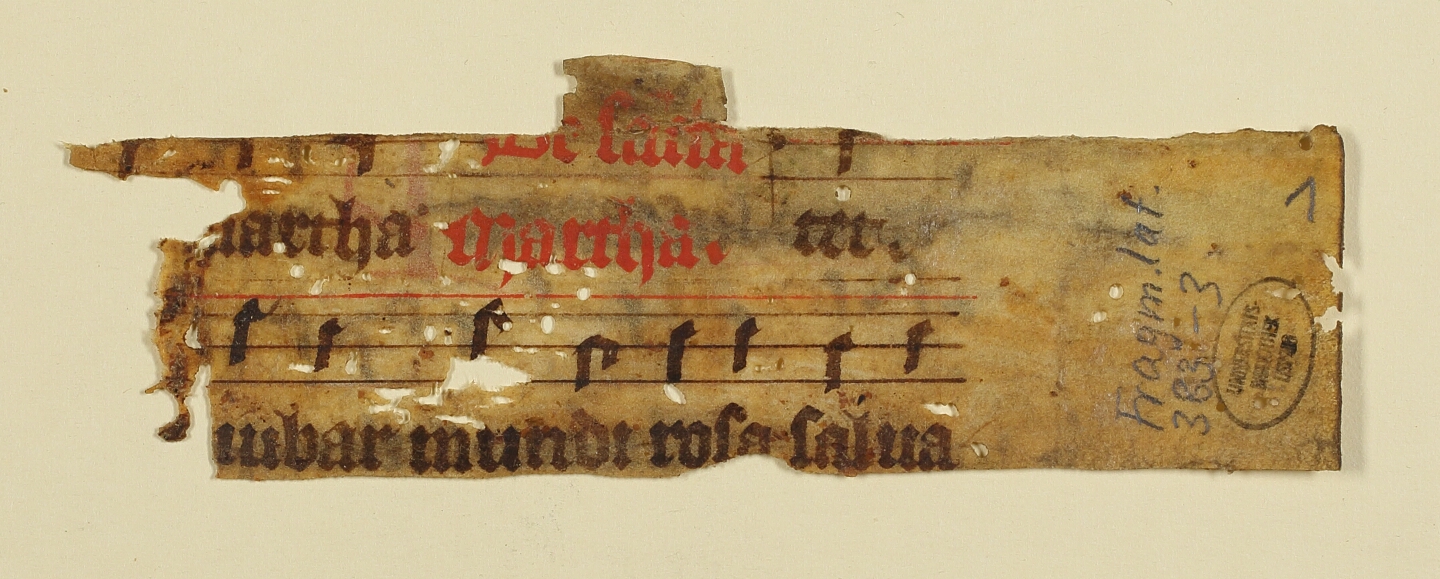 De sancta
martha Martha. tu.
iubar mundi rosa salua
Fragm. lat.
383-3
1
UNIVERSITÄTS-
BIBLIOTHEK